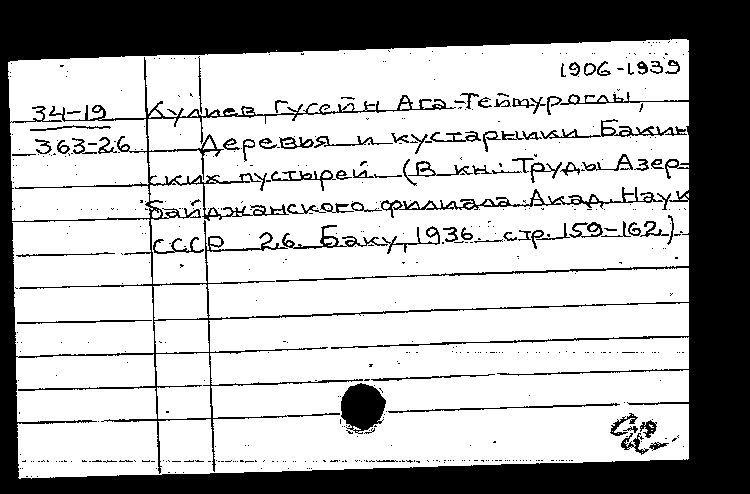 1906-1939
34-19 Кулиев, Гусейн Ага-Теймуроглы,
363-26 Деревья и кустарники Бакин
ских пустырей. (В кн.: Труды Азер-
байджанского филиала Акад. Наук
СССР 26. Баку, 1936. стр. 159-162).